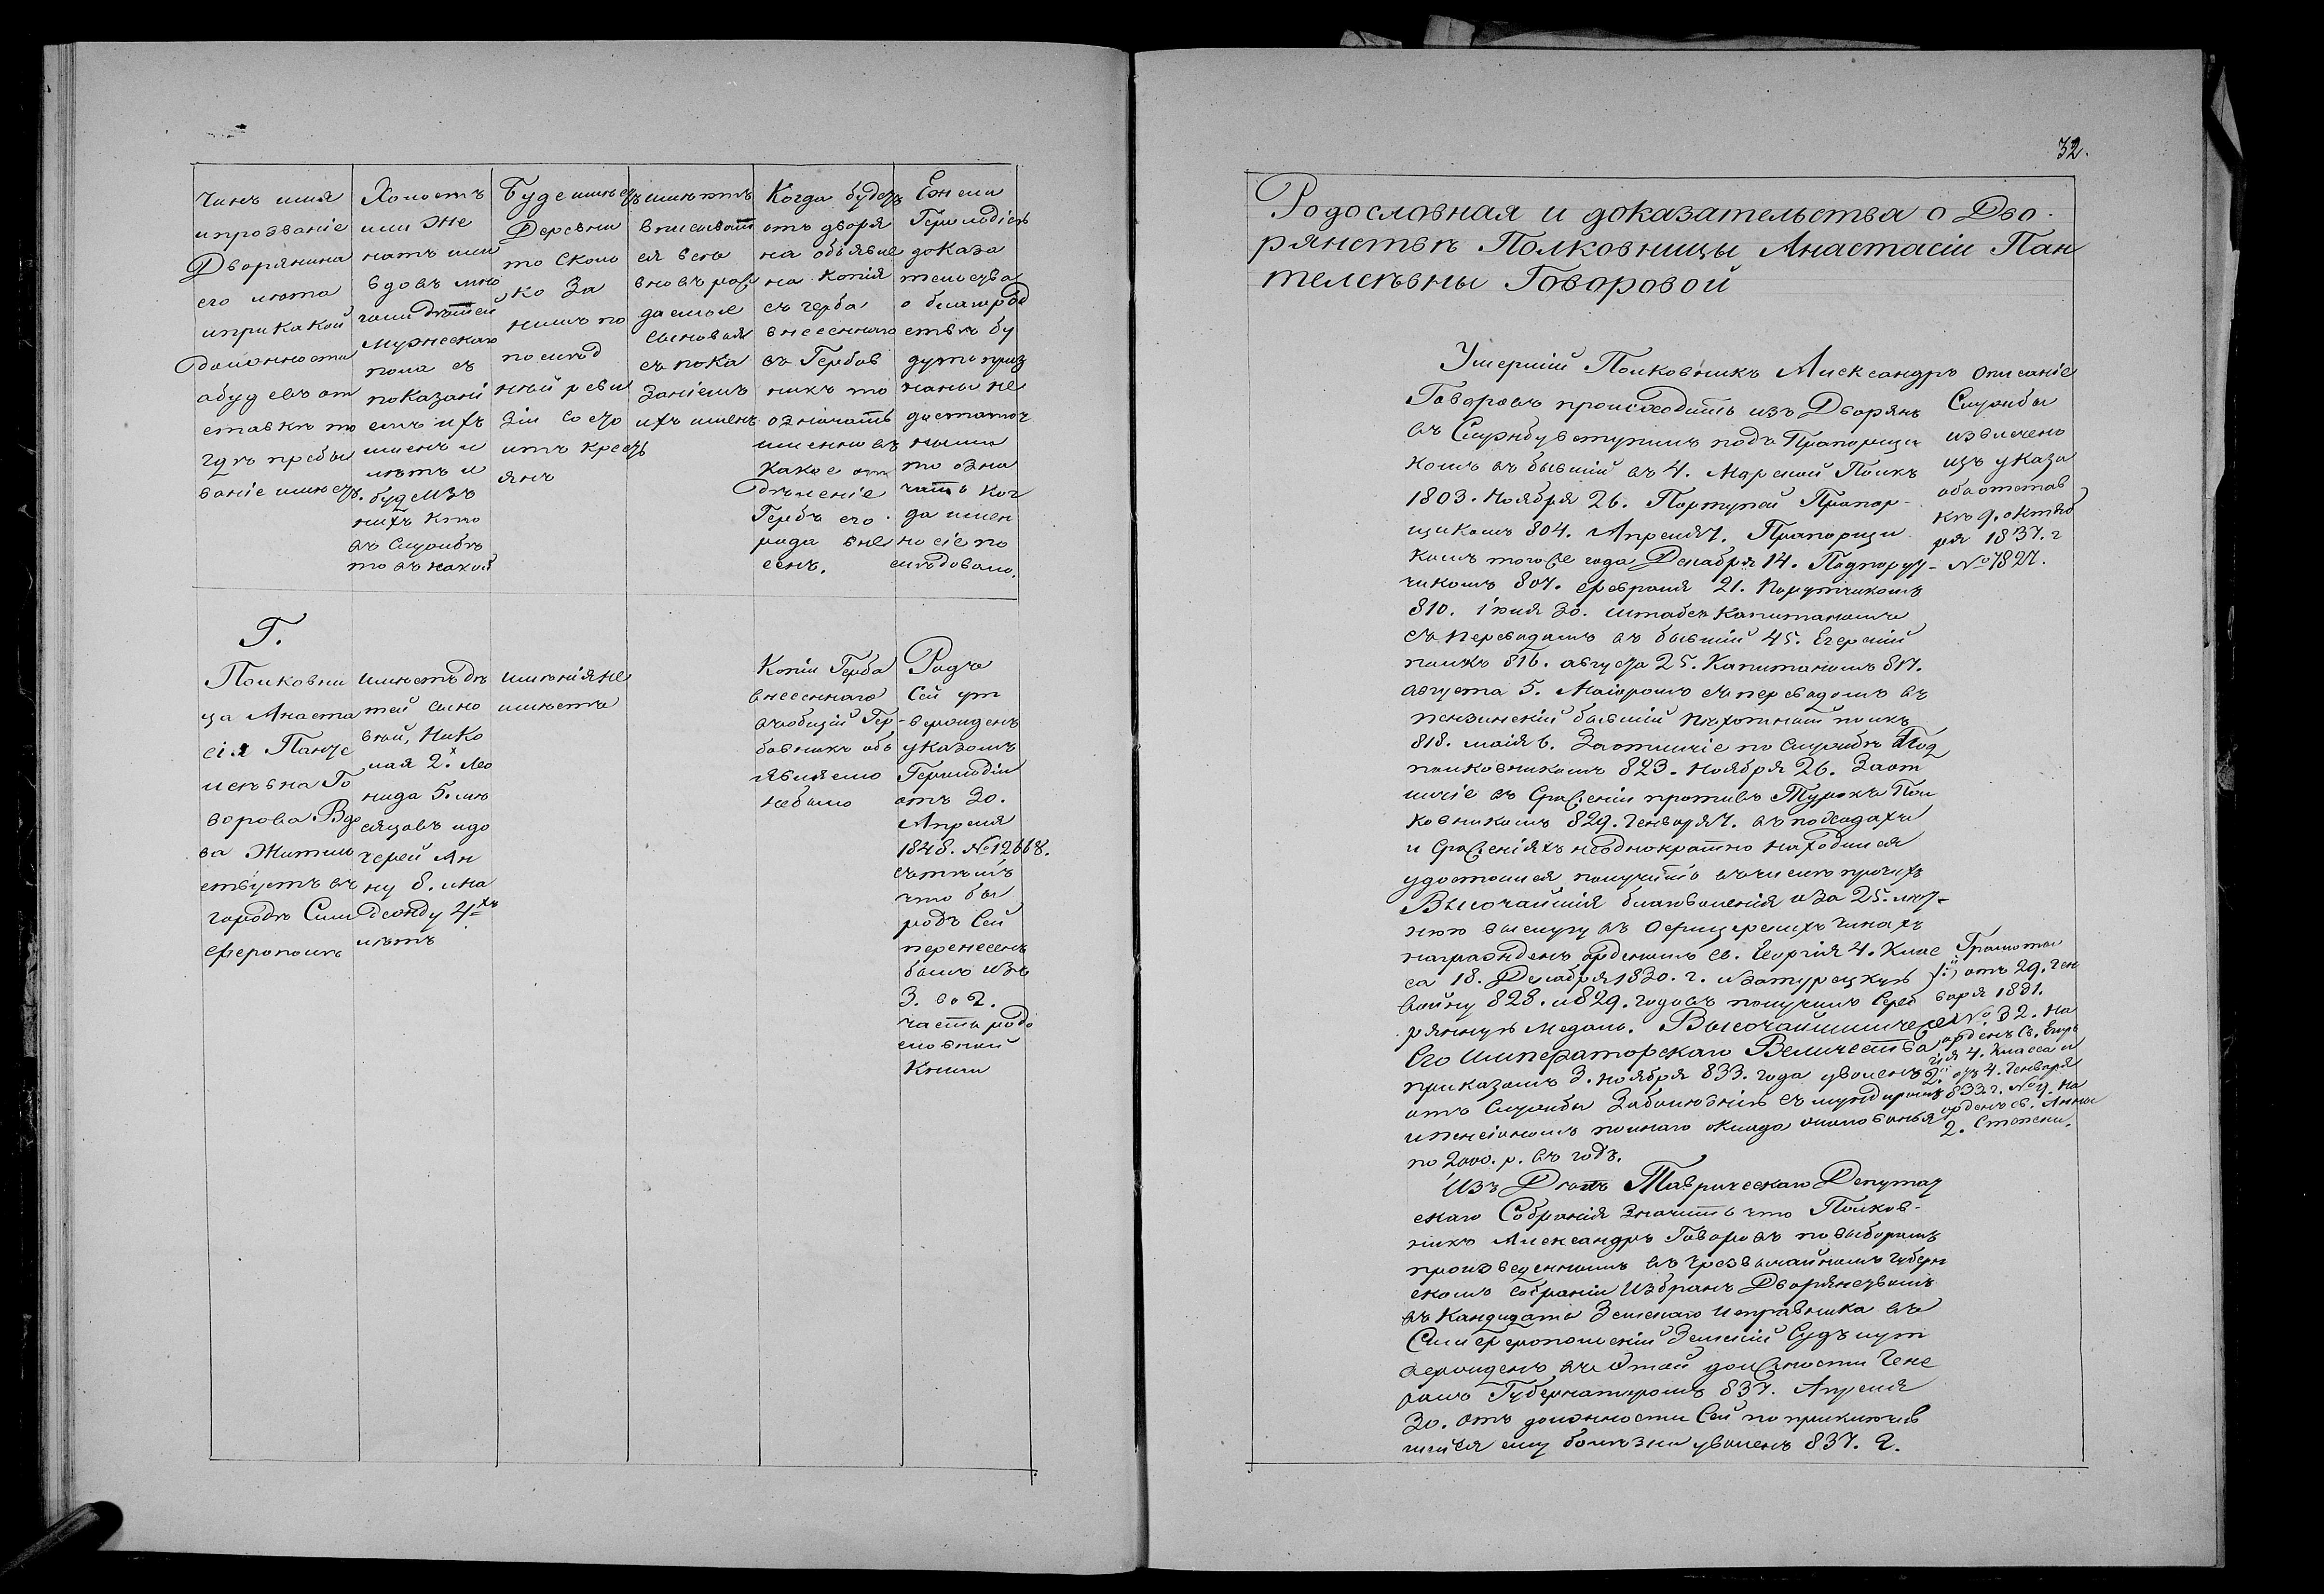 Чинъ имя
ипрозваніе
Дворянина
его лѣта
ипри какой
должности
абуд евъ от
ставкѣ то
гдѣ пребы
ваніе имѣетъ.
Холостъ
или же
натъ или
вдовъ мно
голи дѣтей
мужескаго
пола съ
показані
емъ ихъ
именъ и
лѣтъ и
буде изъ
нихъ кто
въ службѣ
то въ какой
Буде имѣетъ
Деревни
то сколь
ко за
нимъ по
послѣд
ный реви
зіи состо
итъ кресть
янъ
имѣютъ
вписыват
ся всѣ
вновь рож
даемые
сыновья
съ пока
заніемъ
ихъ именъ
Когда будетъ
отъ дворя
на объявле
на копія
съ герба
внесеннаго
въ Гербов
никъ то
означать
именно въ
какое от
дѣленіе
Гербъ его
рода вне
сенъ.
Ежели
Герольдіею
доказа
тельства
о благород
ствѣ бу
дутъ приз
наны не
достаточ
ными
то озна
чать ког
да имен
но сіе по
слѣдовало.
Г.
Полковни
ца Анаста
сія Панте
лѣевна Го
ворова Вдо
ва Житель
ствуетъ въ
городѣ Сим
ферополѣ
имѣетъ дѣ
тей сыно
вей, Нико
лая 2.х Лео
нида 5. мѣ
сяцовъ идо
черей Ан
ну 8. ина
дежду 4хъ
лѣтъ
имѣнія не
имѣетъ
Копіи Герба
внесеннаго
въ общій Гер-
бовникъ объ
являемо
не было
Родъ
Сей ут
вержденъ
указомъ
Герольдіи
отъ 30.
Апреля
1848. № 12668.
сътѣмъ
что бы
родъ сей
перенесенъ
былъ изъ
3. во 2.
часть родо
словной
Книги
32.
Родословная и доказательства о Дво-
рянствѣ Полковницы Анастасіи Пан
телеѣвны Говоровой
Умершій Полковникъ Александръ
Говоровъ происходитъ изъ Дворянъ
въ Службу вступилъ подъ Прапорщи
комъ въ бывшій въ 4. Морской Полкъ
1803. Ноября 26. Портупей Прапор-
щикомъ 804. Апреля 7. Прапорщи
комъ тогоже года Декабря 14. Подпору-
чикомъ 807. февраля 21. Поручикомъ
810. іюня 30. штабсъ Капитаномъ
съ переводомъ въ бывшій 45. Егерскій
полкъ 816. августа 25. Капитаномъ 817.
августа 5. Маіоромъ съ переводомъ въ
пензинскій бывшій пѣхотный полкъ
818. маія 6. За отличіе по службѣ Под
полковникомъ 823. Ноября 26. За от
личіе въ Сраженіи противъ Турокъ Пол
ковникомъ 829. Генваря 7. въ походахъ
и Сраженіяхъ неоднократно находился
удостоился получить въ число прочихъ
Высочайшія благоволенія и за 25. лѣт-
нюю выслугу въ Офицерскихъ чинахъ
награжденъ орденомъ св. Георгія 4. Клас
са 18. Декабря 1830. г. и за турецкую
войну 828. и 829. годовъ получилъ Сереб
рянную медаль. Высочайшимъ
Его Императорскаго Величества
приказомъ 3. ноября 833. года уволенъ
отъ Службы За болѣзнію съ мундиромъ
и пенсіономъ полнаго оклада жалованья
по 2000. р. въ годъ.
Изъ Дѣлъ Таврическаго Депутат
скаго Собранія значитъ что Полков-
никъ Александръ Говоровъ по выборамъ
произведеннымъ въ чрезвычайномъ Губерн
скомъ собраніи Избранъ Дворянствомъ
въ Кандидаты Земскаго Исправника въ
Симферопольскій Земскій Судъ иут
вержденъ въ этой должности Гене
ралъ Губернаторомъ 837. Апреля
30. отъ должности сей по приключив
шейся ему болѣзни уволенъ 837. г.
Описаніе
Службы
извлечено
изъ указа
объ отстав
кѣ 9. октяб
ря 1837. г
№ 7827.
Грамоты
отъ 29. Ген
варя 1831.
№ 32. На
орденъ Св. Геор
гія 4. Класса и
2. отъ 4. Генваря
833. г. № 9. На
орденъ св. Анны
2. Степени.